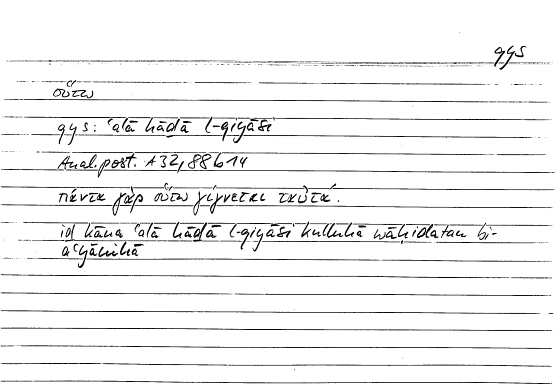 qys
οὕτω
qys: ʿalā hāḏā l-qiyāsi
Anal. post. A 32, 88 b 14
πάντα γὰρ οὕτω γίγνεται ταὐτά.
iḏ kāna ʿalā hāḏā l-qiyāsi kulluhā wāḥidatan bi-
aʿyānihā